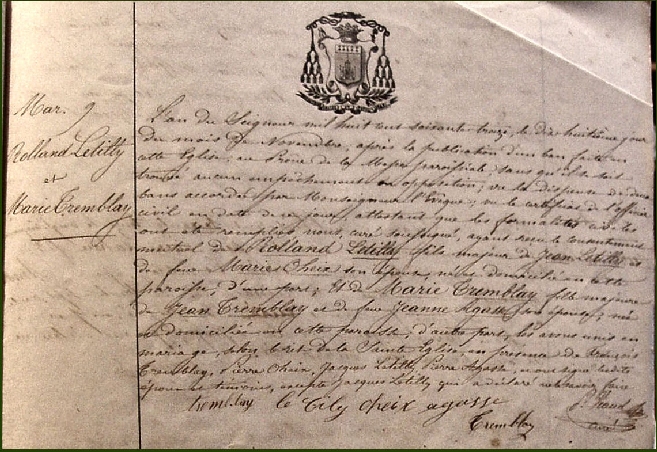 Mar. 9
Rolland Letilly
et
Marie Tremblay
L'an du Seigneur mil huit cent soixante treize, le dix huitième jour
du mois de Novembre, après la publication d'un ban faite en
cette Eglise, au Prone de la Messe paroissiale sans qu'il se soit
trouvé aucun empêchement ou opposition; vu la dispense de deux
bans accordée par Monseigneur l'Evêque; vu le certificat de l'officier
civil en date de ce jour, attestant que les formalités civiles
ont été remplies nous, curé soussigné, ayant reçu le consentement
mutuel de Rolland Letilly fils majeur de Jean Letilly et
de feue Marie Cheix son épouse, né et domicilié en cette
paroisse, d'une part; Et de Marie Tremblay, fille majeure
de Jean Tremblay et de feue Jeanne Agasse son épouse; née
et domiciliée en cette paroisse, d'autre part, les avons unis en
mariage, selon le rit de la Sainte Eglise, en présence de François
Tremblay, Pierre Cheix, Jacques Letilly, Pierre Agasse, nous signé
époux et témoins, excepté Jacques Letilly qui a déclaré ne savoir faire
tremblay le Tily cheix agasse
Tremblay
curé